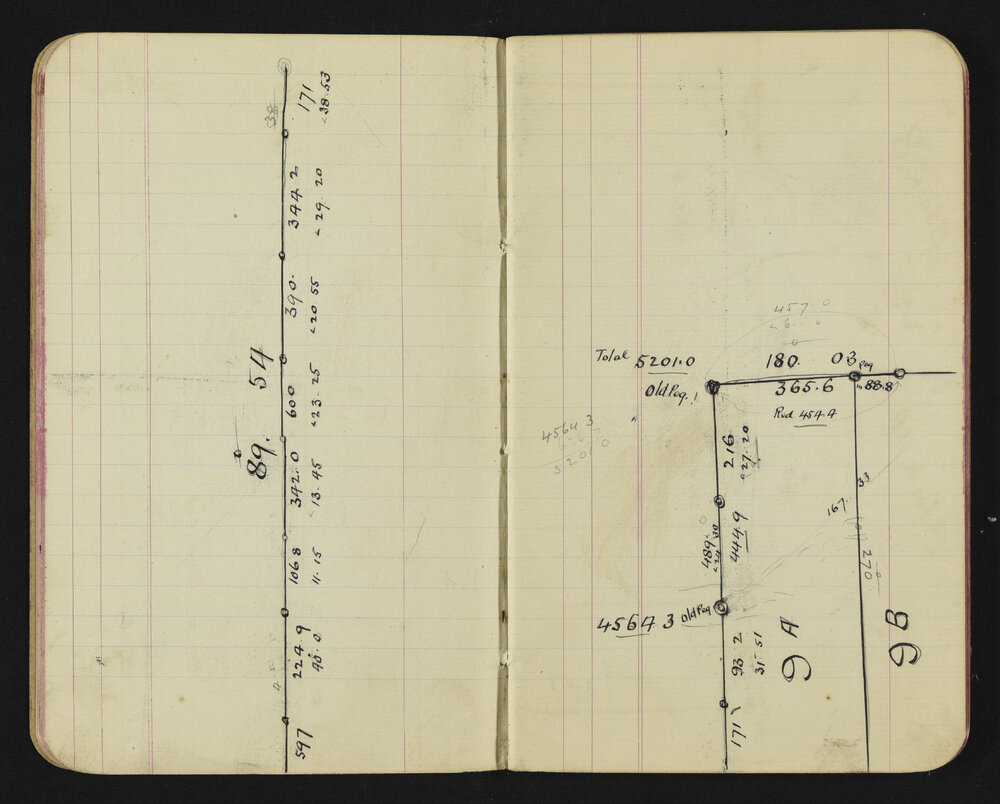 38
171
<38.53
344 2
<29.20
390.
<20 55
54
600
<23.25
89.
342.0
<13.45
106 8
11.15
224 9
40.0
4
597
457.0
<6
Total 5201.0
180. 03 peg
Old Peg.
365.6
88.8
Red 454.4
4564 3
5201 0
216
<27.20
33
167
489.0
<24 30
444.9
270
4564 3 Old Peg
93 2
31.51
9 A
9 B
171